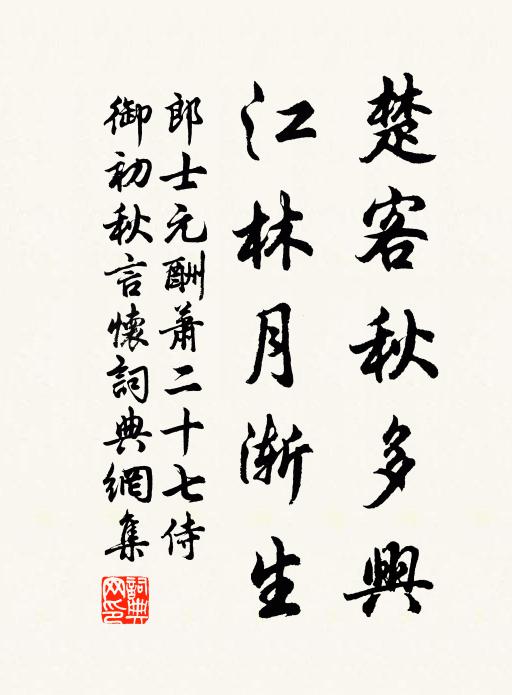 楚客秋多興
江林月漸生
郎士元酬蕭二十七侍
御初秋言懷詞典網集
詞典
网印